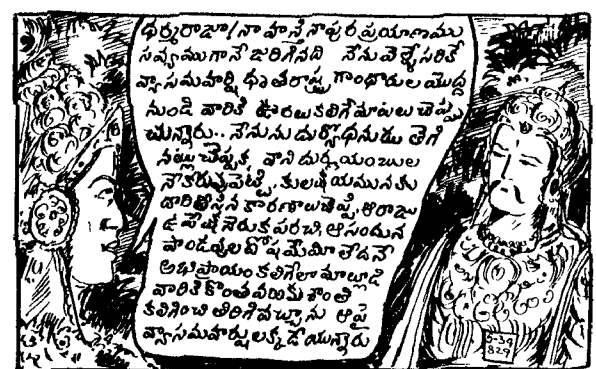 ధర్మరాజా! నా హస్తినాపుర ప్రయాణము
సవ్యముగానే జరిగినది నేను వెళ్ళేసరికే
వ్యాసమహర్షి ధృతరాష్ట్ర గాంధారుల యొద్ద
నుండి వారికి ఊరటకలిగే మాటలు చెప్పు
చున్నారు.. నేనును దుర్యోధనుడు తెగి
నట్లు చెప్పక, వాని దుర్నయంబుల
నేకరువుపెట్టి, కులక్షయమునకు
దారితీసిన కారణాలు చెప్పి, ఆ రాజు
ఉపేక్ష నెరుక పరచి, ఆసందున
పాండవుల దోషమేమీ లేదనే
అభిప్రాయం కలిగేలా మాట్లాడి
వారికి కొంతవఱకు శాంతి
కలిగించి తిరిగివచ్చాను ఆపై
వ్యాసమహర్షులక్కడే యున్నారు
5-39
829